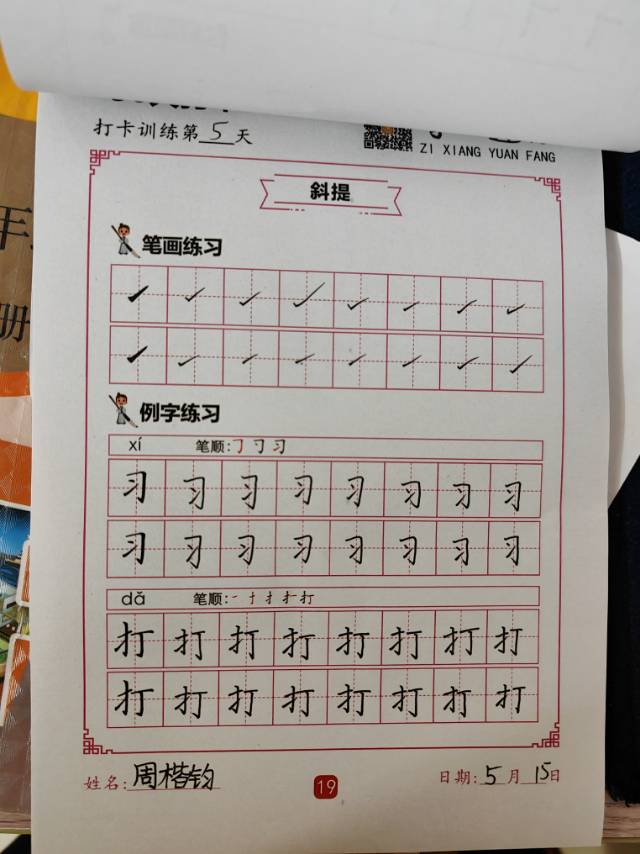 打卡训练第5天
ZI XIANG YUAN FANG
斜提
笔画练习
例字练习
xí 笔顺:㇆ 刁 习
习 习 习 习 习 习 习 习
习 习 习 习 习 习 习 习
dǎ 笔顺:一 十 扌 扩 打
打 打 打 打 打 打 打 打
打 打 打 打 打 打 打 打
姓名:周楷钧
19
日期:5月15日
册